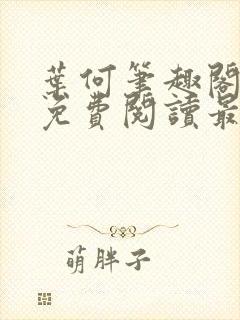 葉何筆趣閣
免費閱讀最
萌胖子